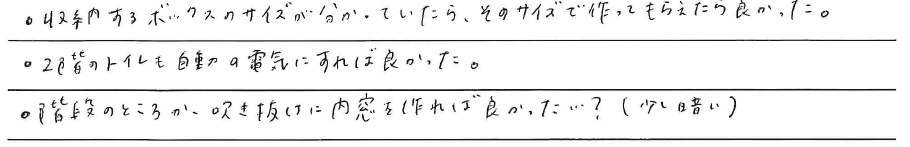 。収納するボックスのサイズが分かっていたら、そのサイズで作ってもらえたら良かった。
。2階のトイレも自動の電気にすれば良かった。
。階段のところか、吹き抜けに内窓を作れば良かった…?(少し暗い)